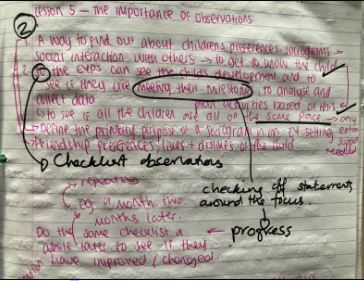 lesson 5 – the importance of observations
2
1. A way to find out about childrens preferences - sociograms →
social interaction with others → to get to know the child
2. so the EYPs can see the childs development and to
see if they are making their milestones, to analyse and
collect data
plan activities based of this
↳ to see is all the children are all on the same pace → any
→ Define the primary purpose of a sociogram in an EY setting, extra
support
needed
friendship preferences, likes + dislikes of the child
→ Checklist observations
→ repeating
checking off statements
around the focus.
eg. a month, two
months later.
progress
Do the same checklist a
while later to see if they
have improved / changed